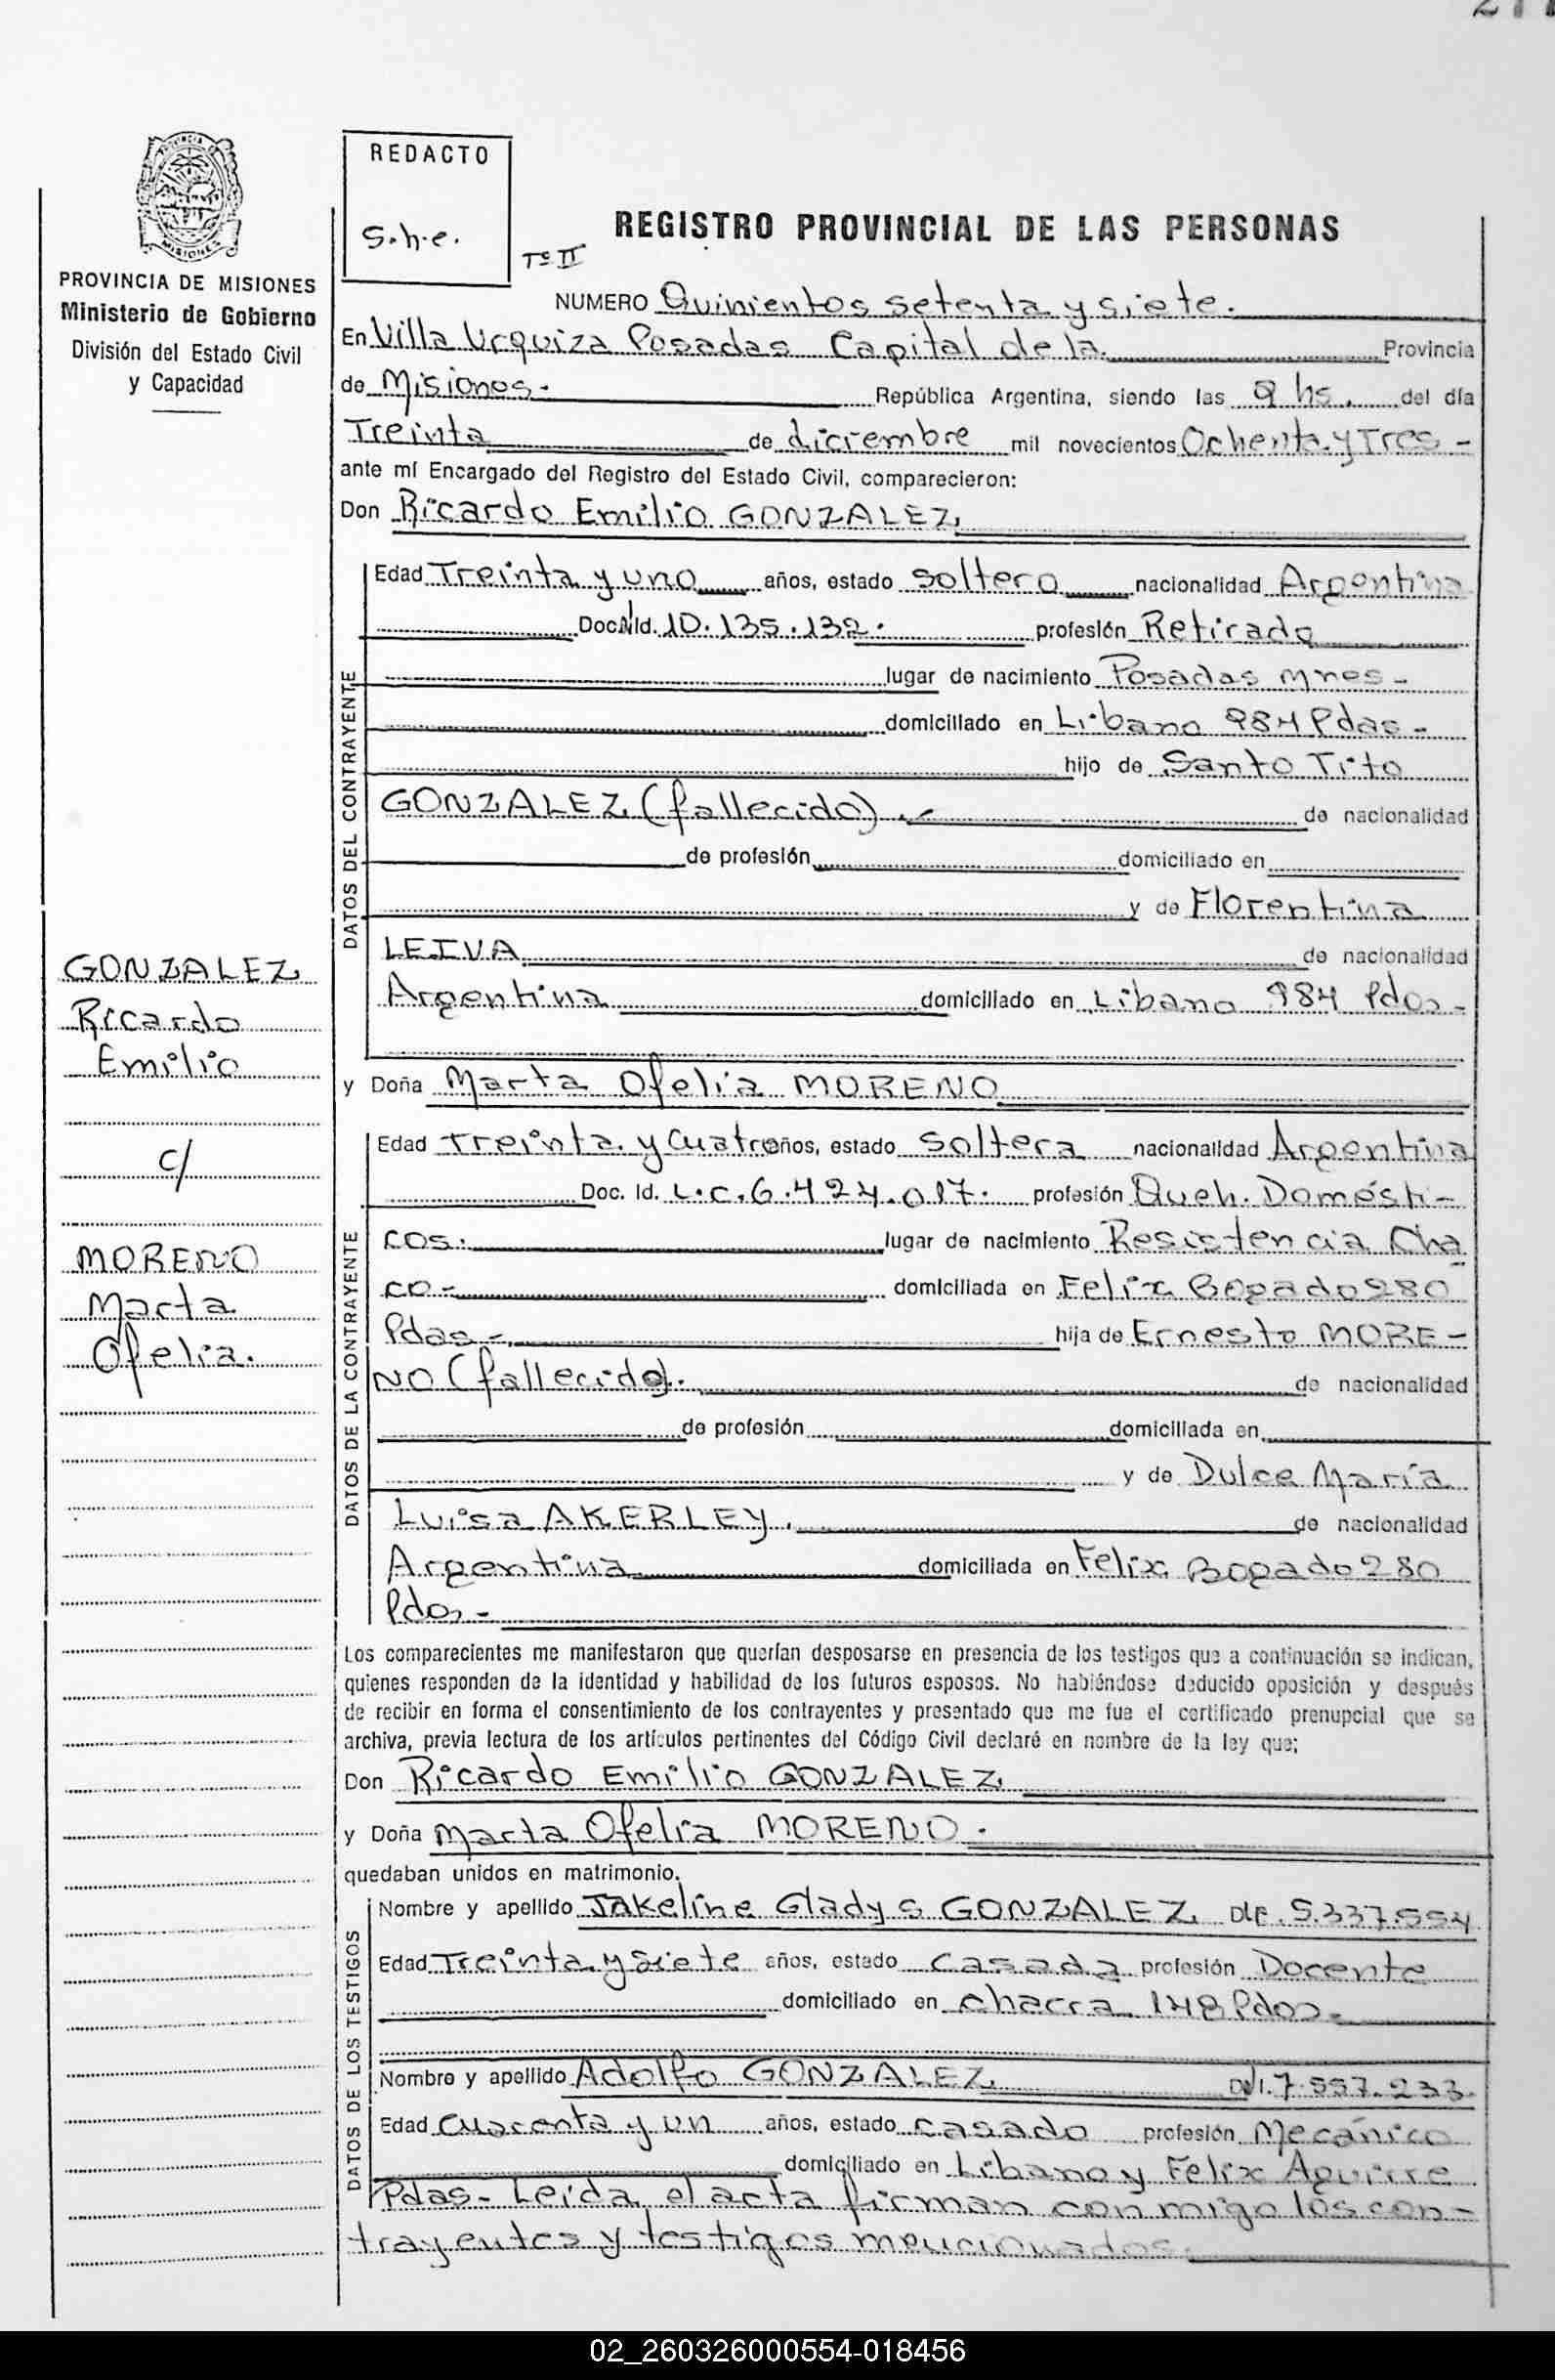 REDACTO
S.h.e.
Tº II
PROVINCIA DE MISIONES
Ministerio de Gobierno
División del Estado Civil
y Capacidad
REGISTRO PROVINCIAL DE LAS PERSONAS
NUMERO Quinientos setenta y siete.
En Villa Urquiza Posadas Capital de la Provincia
de Misiones- República Argentina, siendo las 9 hs. del día
Treinta de diciembre mil novecientos Ochenta y Tres-
ante mí Encargado del Registro del Estado Civil, comparecieron:
Don Ricardo Emilio GONZALEZ
DATOS DEL CONTRAYENTE
Edad Treinta y uno años, estado soltero nacionalidad Argentina
Doc. Id. 10.135.132. profesión Retirado
lugar de nacimiento Posadas Mnes-
domiciliado en Libano 984 Pdas-
hijo de Santo Tito
GONZALEZ (fallecido).- de nacionalidad
de profesión domiciliado en
y de Florentina
LEIVA de nacionalidad
Argentina domiciliado en Libano 984 Pdas-
GONZALEZ
Ricardo
Emilio
c/
MORENO
Marta
Ofelia.
y Doña Marta Ofelia MORENO
DATOS DE LA CONTRAYENTE
Edad Treinta y cuatro años, estado soltera nacionalidad Argentina
Doc. Id. L.C. 6.424.017. profesión Queh. Domésti-
cos. lugar de nacimiento Resistencia Cha
co- domiciliada en Felix Bogado 280
Pdas- hija de Ernesto MORE-
NO (fallecido). de nacionalidad
de profesión domiciliada en
y de Dulce María
Luisa AKERLEY. de nacionalidad
Argentina domiciliada en Felix Bogado 280
Pdas-
Los comparecientes me manifestaron que querían desposarse en presencia de los testigos que a continuación se indican,
quienes responden de la identidad y habilidad de los futuros esposos. No habiéndose deducido oposición y después
de recibir en forma el consentimiento de los contrayentes y presentado que me fue el certificado prenupcial que se
archiva, previa lectura de los artículos pertinentes del Código Civil declaré en nombre de la ley que;
Don Ricardo Emilio GONZALEZ
y Doña Marta Ofelia MORENO.
quedaban unidos en matrimonio.
DATOS DE LOS TESTIGOS
Nombre y apellido Jakeline Gladys GONZALEZ 5.337.554
Edad Treinta y siete años, estado casada profesión Docente
domiciliado en chacra 148 Pdas-
Nombre y apellido Adolfo GONZALEZ 7.557.233
Edad cuarenta y un años, estado casado profesión Mecánico
domiciliado en Libano y Felix Aguirre
Pdas- Leida el acta firman conmigo los con-
trayentes y testigos mencionados.
02_260326000554-018456